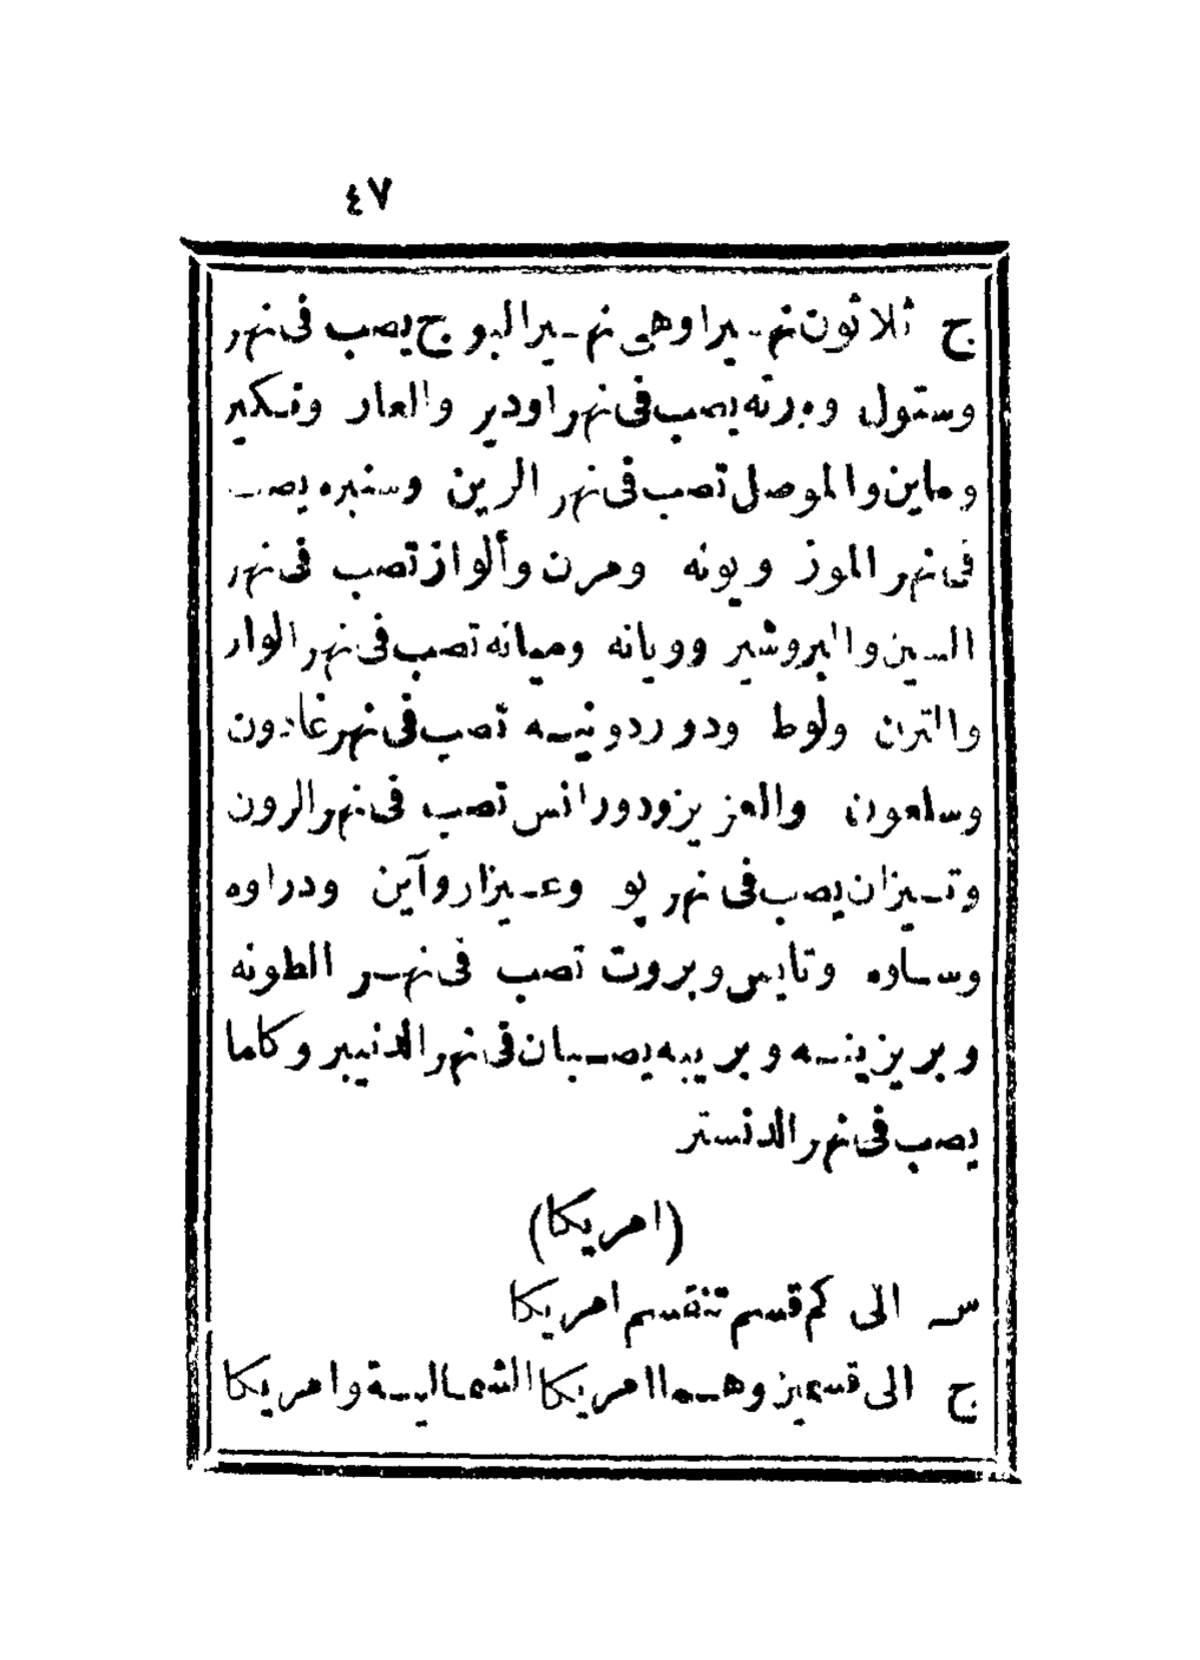 ٤٧
ج ثلاثون نهيرا وهى نهير البوج يصب فى نهر
وستول وورته يصب فى نهر اودير والعار ونكير
وماين والموصل تصب فى نهر الرين وسنبره يصب
فى نهر الموز ويونه ومرن وألواز تصب فى نهر
السين والبروشير وويانه وميانه تصب فى نهر الوار
والترن ولوط ودوردونيه تصب فى نهر غادون
وسلعون والعزيز ودورانس تصب فى نهر الرون
وتيزان يصب فى نهر پو وعيزار وآين ودراوه
وساوه وتايس وبروت تصب فى نهر الطونه
وبريزينه وبريبه يصبان فى نهر الدنيبر وكاما
يصب فى نهر الدنستر
(امريكا)
س الى كم قسم تنقسم امريكا
ج الى قسمين وهما امريكا الشمالية وامريكا